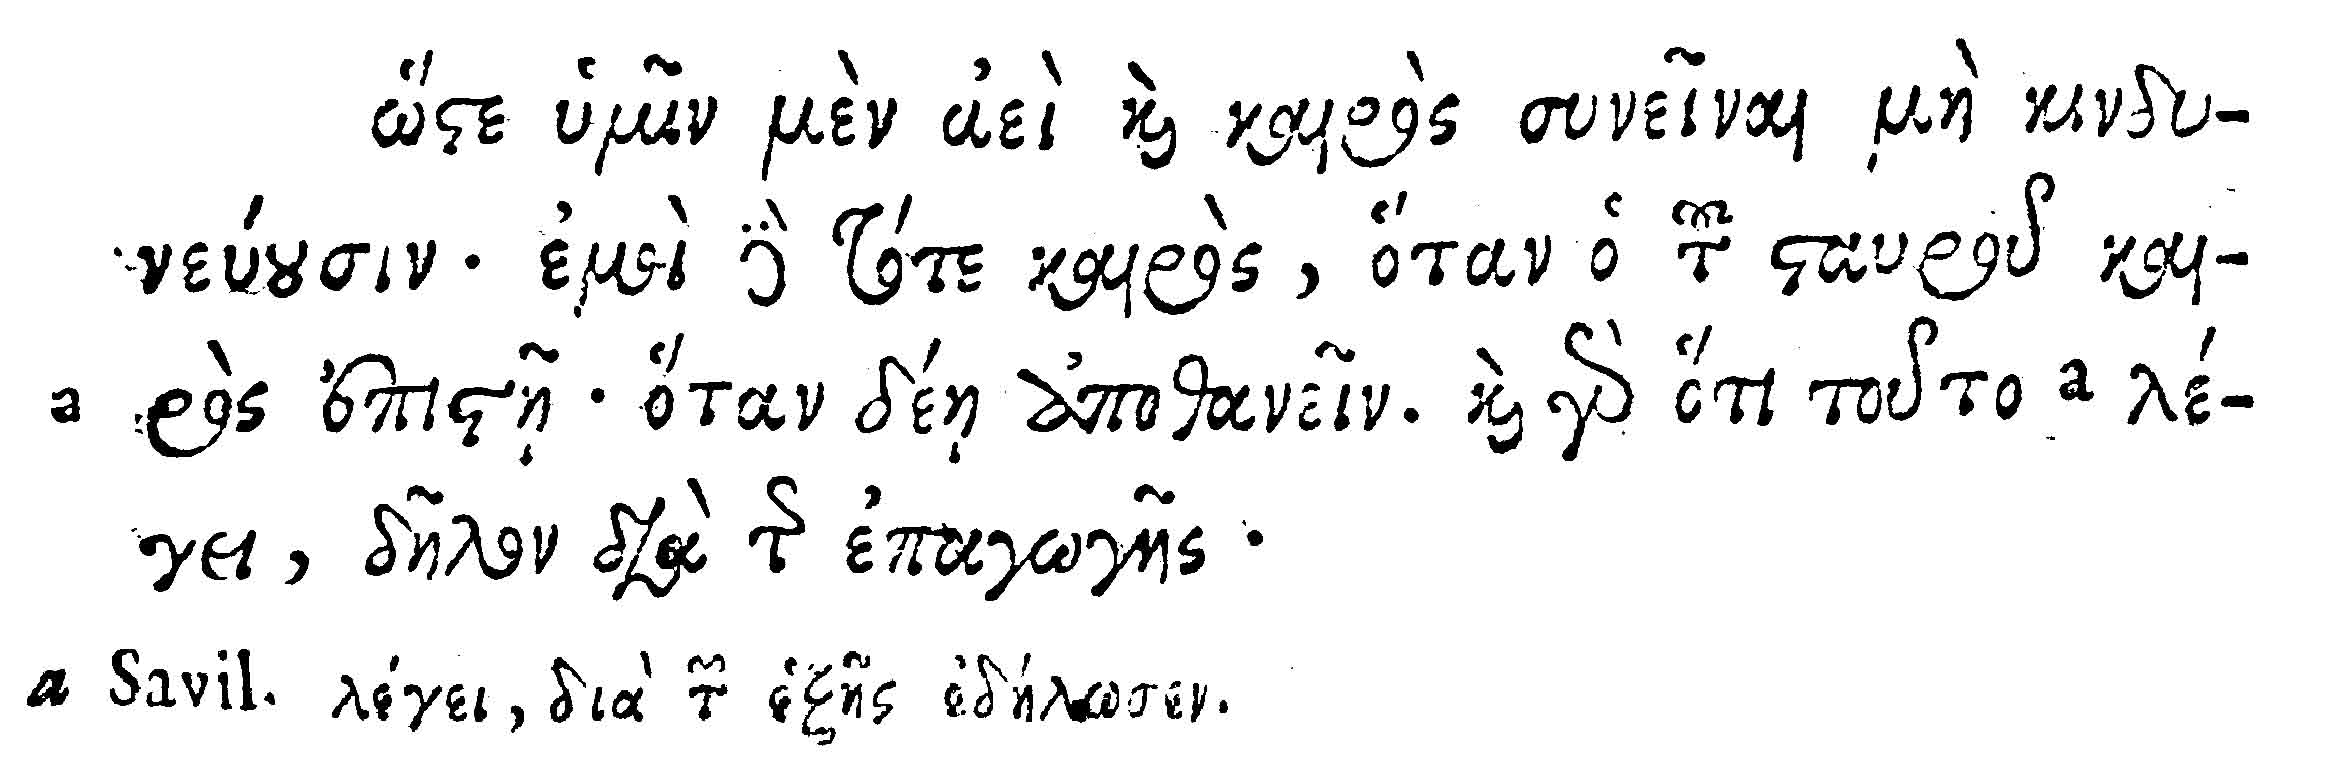 ὥστε ὑμῖν μὲν ἀεὶ καὶ καιρὸς συνεῖναι μὴ κινδυ-
νεύουσιν· ἐμοὶ δὲ τότε καιρὸς, ὅταν ὁ τοῦ σταυροῦ και-
a ρὸς ἐπιστῇ· ὅταν δέῃ ἀποθανεῖν. καὶ γὰρ ὅτι τοῦτο a λέ-
γει, δῆλον διὰ τῆς ἐπαγωγῆς·
a Savil. λέγει, διὰ τῶν ἑξῆς ἐδήλωσεν.